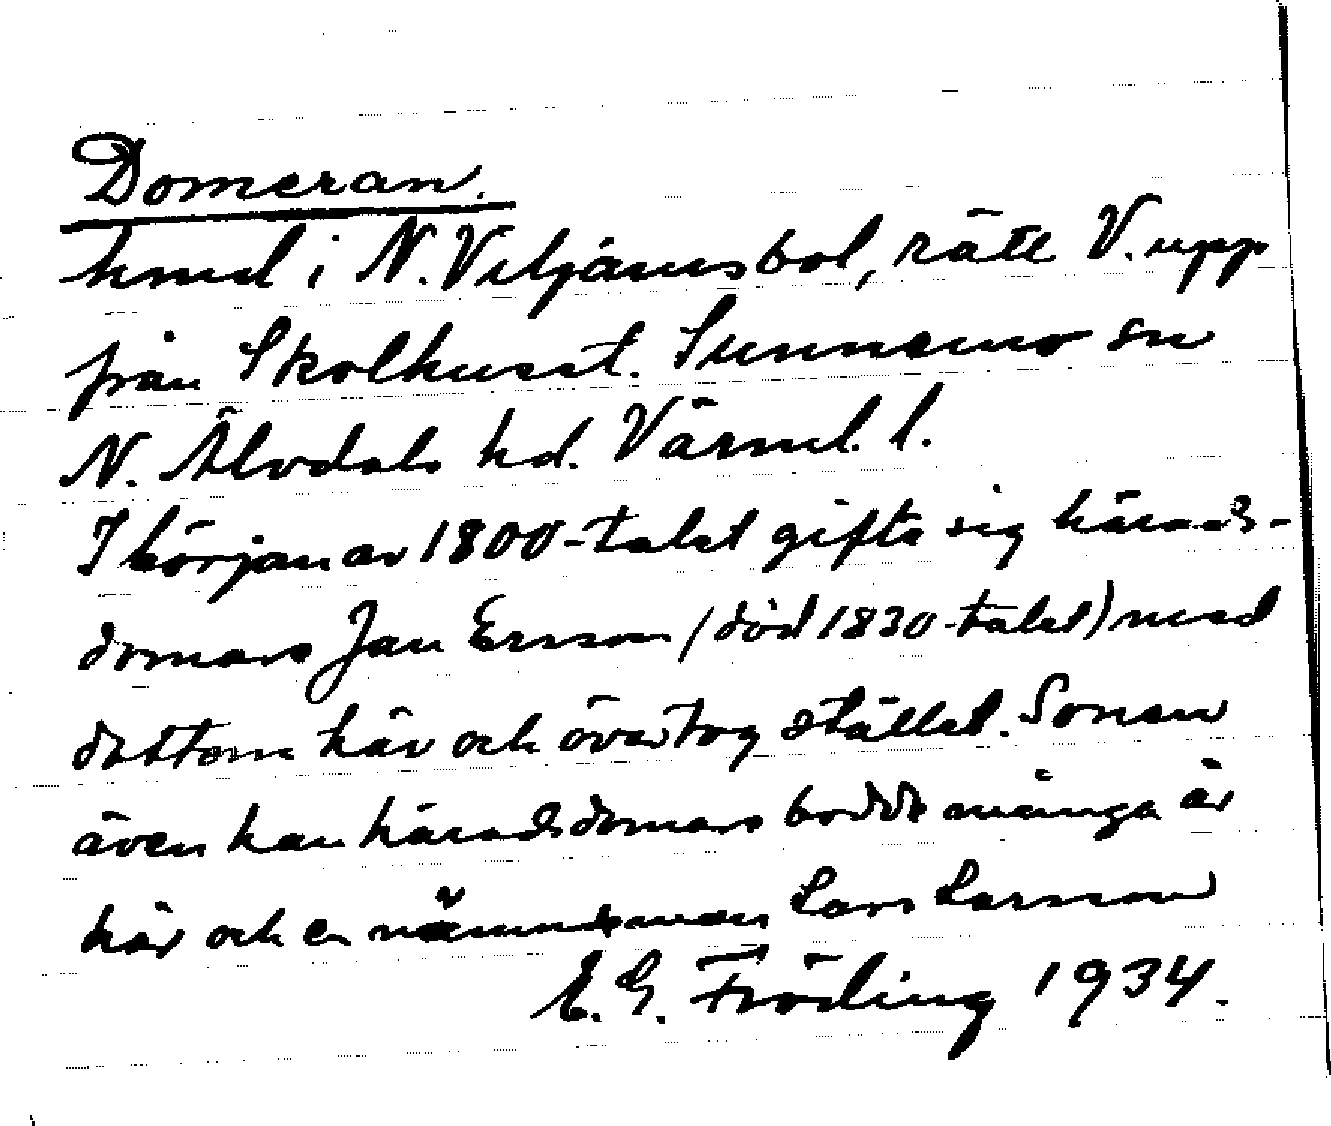 Domeran.
hmd i N. Viljamsbol, rätt V. upp
från Skolhuset. Sunnemo sn
N. Älvdals hd. Värml. l.
I början av 1800-talet gifte sig härads-
domare Jan Ersson (död 1830-talet) med
dottern här och övertog stället. Sonen
även han häradsdomare bodde många år
här och en nämndeman Lars Larsson
E. G. Fröding 1934.